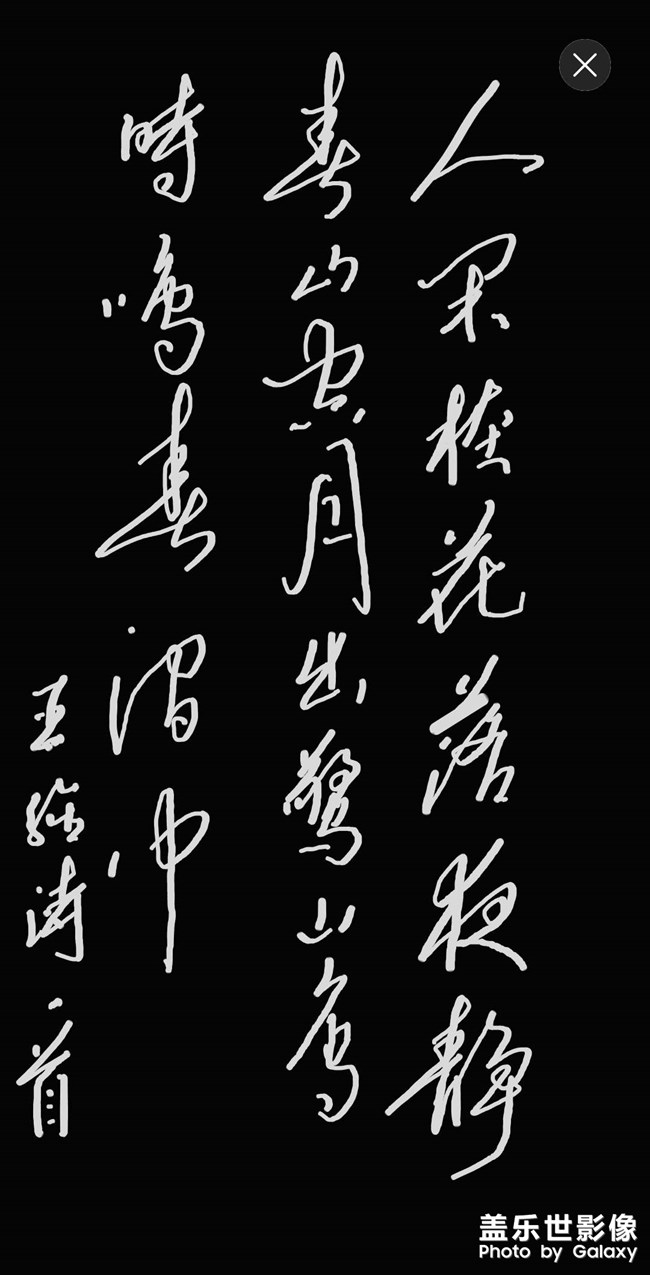 人闲桂花落夜静
春山空月出驚山鳥
時鳴春涧中
王維诗一首
盖乐世影像
Photo by Galaxy